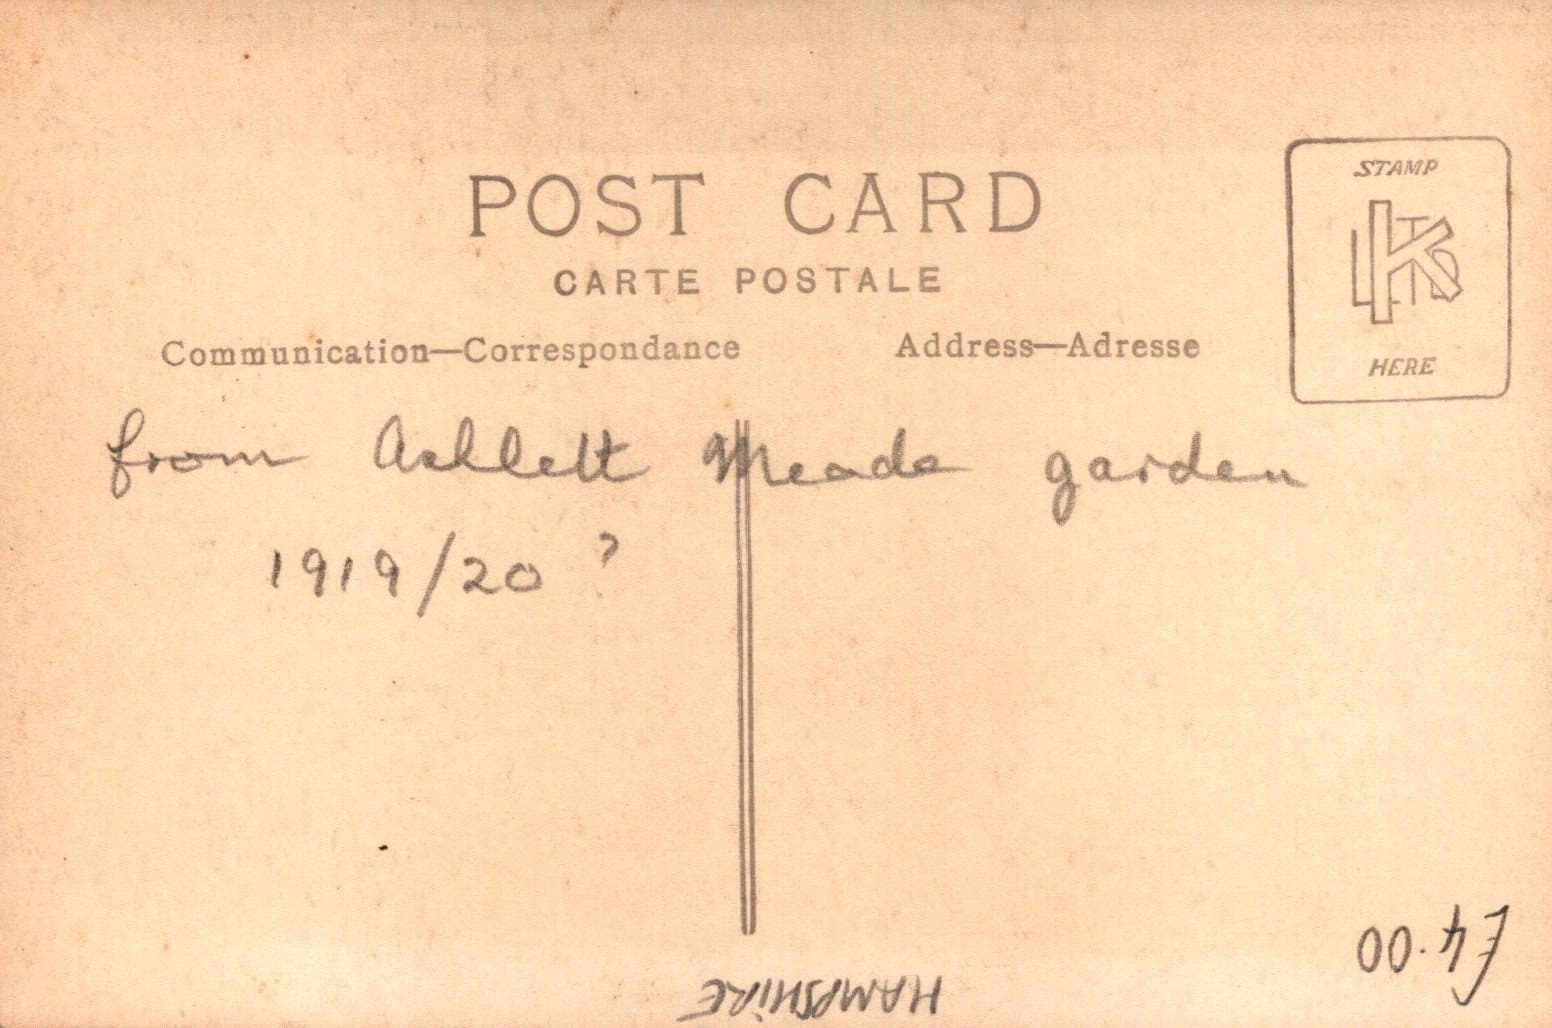 POST CARD
CARTE POSTALE
Communication—Correspondance
Address—Adresse
STAMP
HERE
from Ashlett Meade garden
1919/20 ?
HAMPSHIRE
£4.00